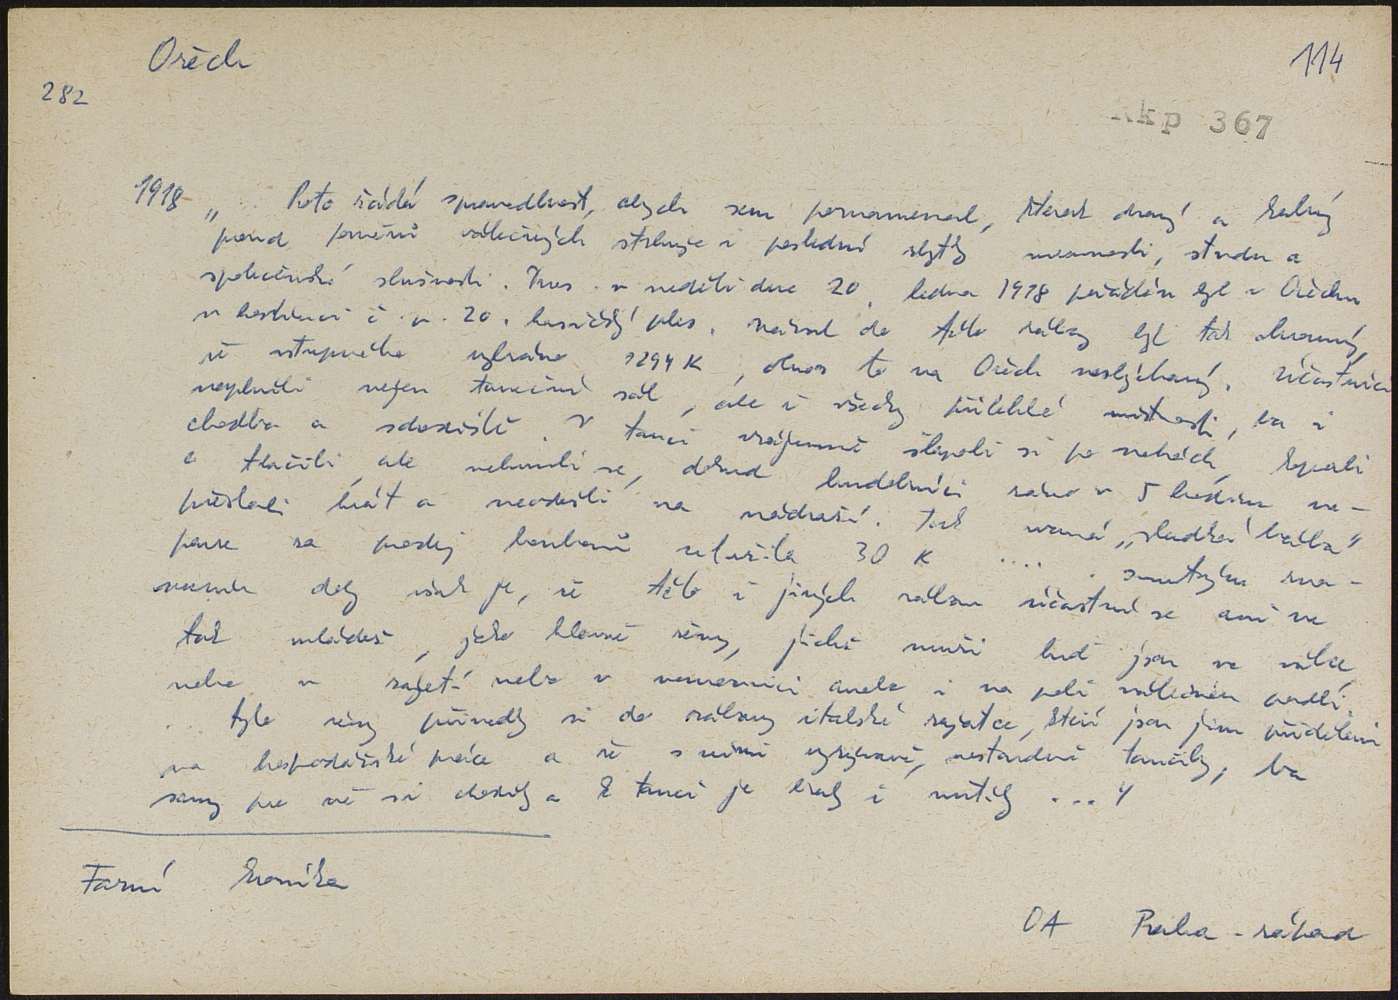 Ořech
114
282
Rkp 367
1918 „ .. Proto žádá spravedlnost, abych sem poznamenal, kterak dravý a kalný
proud poměrů válečných strhuje i poslední zbytky mravnosti, studu a
společenské slušnosti. Dnes v neděli dne 20. ledna 1918 pořádán byl v Ořechu
v hostinci č. p. 20. hasičský ples. Nával do této zábavy byl tak ohromný,
že vstupného vybráno 1294 K, obnos to na Ořech neslýchaný. Účastníci
naplnili nejen taneční sál, ale i všecky přilehlé místnosti, ba i
chodbu a schodiště. V tanci vzájemně šlapali si po nohách, kopali
a tlačili, ale nehnuli se, dokud hudebníci ráno v 5 hodin ne-
přestali hrát a neodešli na nádraží. Tak zvaná „sladká bába"
pouze za prodej bonbonů utržila 30 K .... . Smutným zna-
mením doby však je, že této i jiných zábav účastní se ani ne
tak mládež, jako hlavně ženy, jichž muži buď jsou ve válce,
nebo v zajetí nebo v nemocnici anebo i na poli válečném padli.
.. Tyto ženy přivedly si do zábavy italské zajatce, kteří jsou jim přiděleni
na hospodářské práce a že s nimi vyzývavě, nestoudně tančily, ba
samy pro ně si chodily a k tanci je braly i nutily ..."
Farní kronika
OA Praha - západ